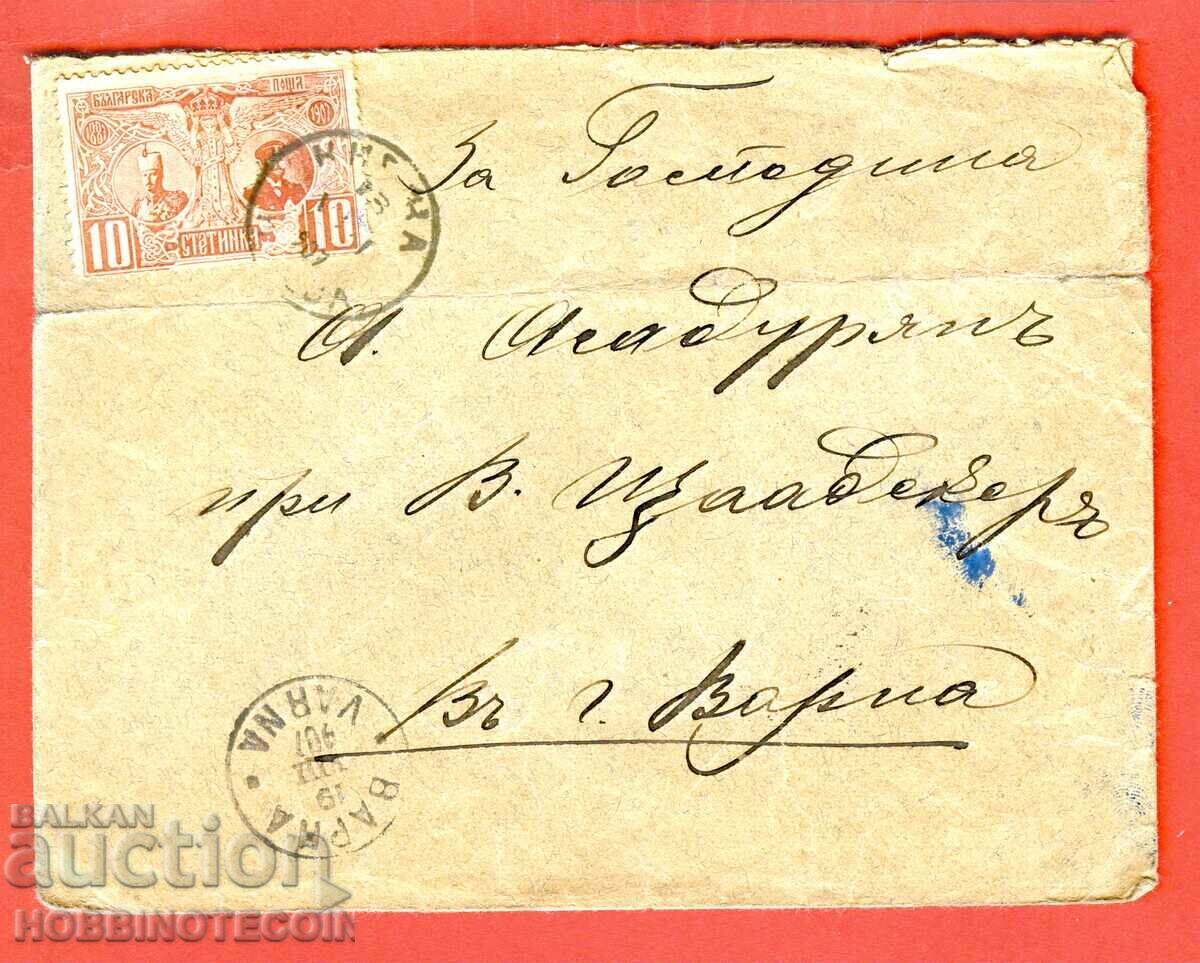 БЪЛГАРСКА ПОЩА
1887 1907
10 СТОТИНКИ 10
За Господина
А. Асадурянъ
при В.
Въ г. Варна
ВАРНА
19
VIII
907
VARNA
BALKAN
auction
HOBBINOTECOIN